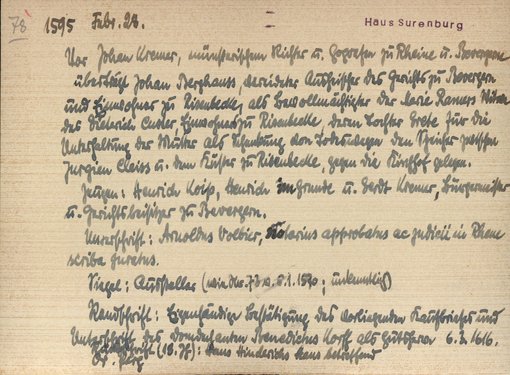 78 1595 Febr. 28. Haus Surenburg
Vor Johan Kremer, münsterischem Richter u. Gografen zu Rheine u. Bevergern
überträgt Johan Berghauss, vereideter Aufseher des Gerichts zu Bevergern
und Einwohner zu Risenbecke, als Bevollmächtigter der Marie Witwe
des Dieterich Einwohners zu Risenbecke, deren Tochter Grete für die
Unterhaltung der Mutter als Schenkung von Todeswegen den Speicher zwischen
Jurgien Cleiss u. dem Küster zu Risenbecke, gegen die Kirchhof gelegen.
Zeugen: Henrich Henrich im Grunde u. Gerdt Kremer, Bürgermeister
u. Gerichtsbeisitzer zu Bevergern.
Unterschrift: Arnoldus Volbier, Notarius approbatus ac judicii in Rhene
scriba juratus.
Siegel: Aussteller (wie Nr. 73 v. 1590; unkenntlich)
Randschrift: Eigenhändige Bestätigung des vorliegenden Kaufbriefes und
Unterschrift des Domdechanten Benedictus Korff als Gutsherrn 6. 3. 1616.
(18. Jh): Hans Hinderichs Haus betreffend
Or. Perg